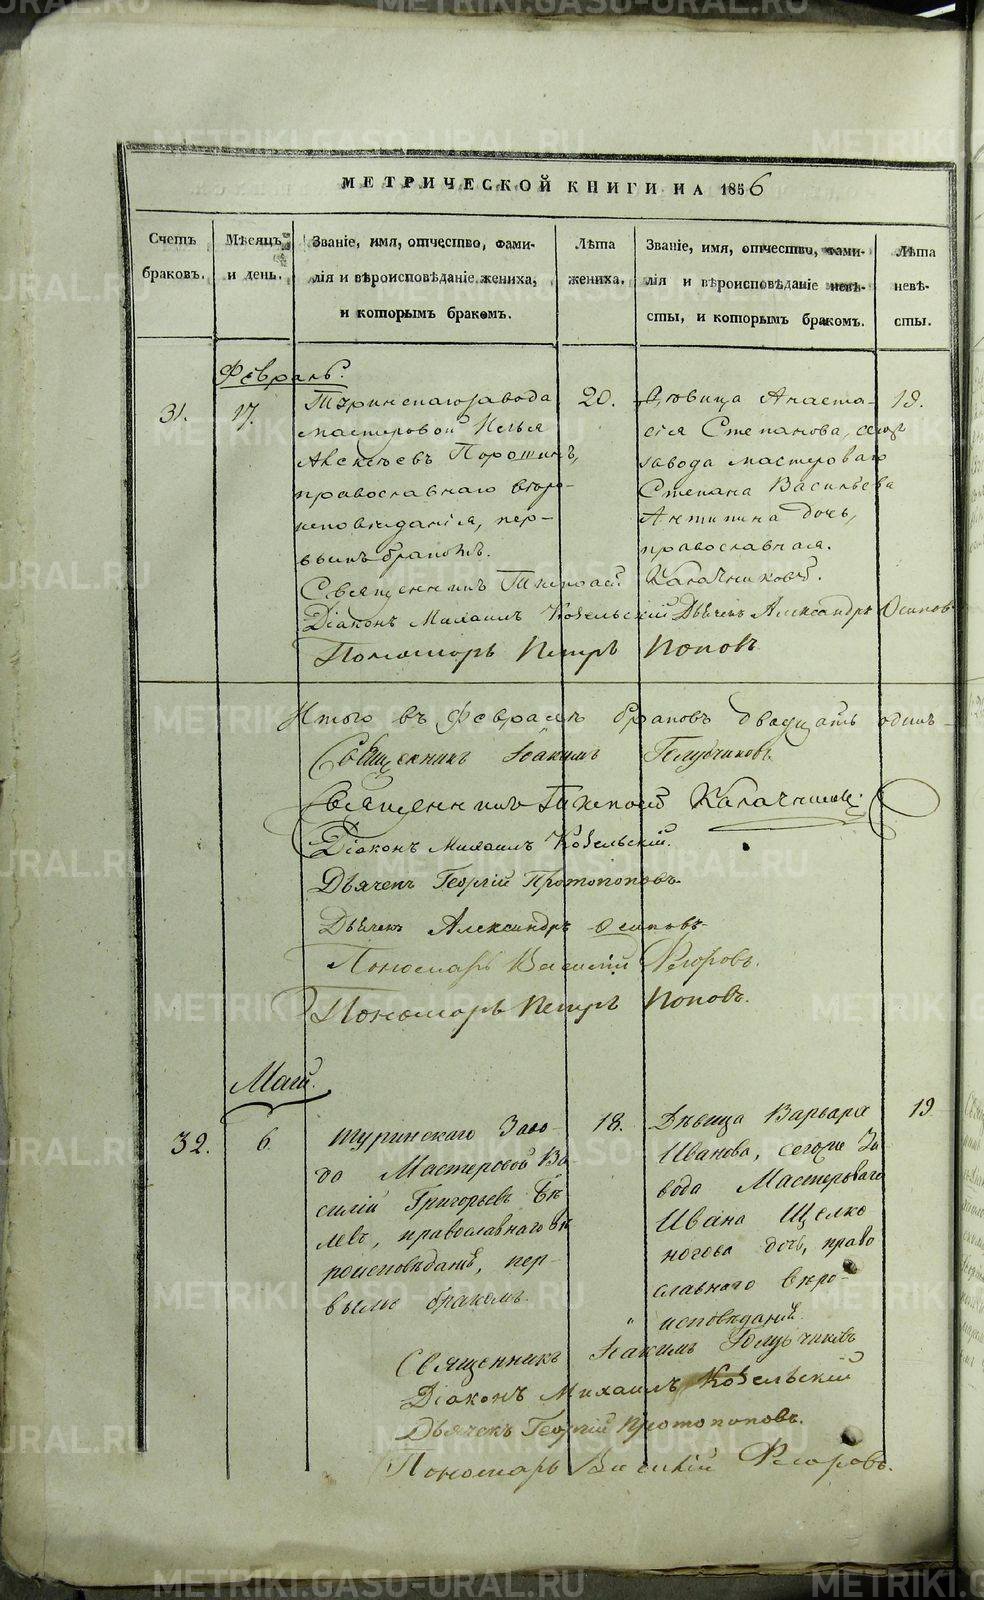 МЕТРИЧЕСКОЙ КНИГИ НА 1856
Счетъ браковъ.
Мѣсяцъ и день.
Званіе, имя, отчество, фами-
лія и вѣроисповѣданіе жениха,
и которымъ бракомъ.
Лѣта жениха.
Званіе, имя, отчество, фами-
лія и вѣроисповѣданіе невѣ-
сты, и которымъ бракомъ.
Лѣта невѣ-
сты.
Февраль.
31.
17.
Туринскаго завода
мастеровой Илья
Алексѣевъ Порошинъ,
православнаго вѣро-
исповѣданія, пер-
вымъ бракомъ.
20.
Дѣвица Анаста-
сія Степанова, сегожъ
завода мастероваго
Степана Васильева
Антипина дочь,
православная.
19.
Священникъ Тимофей Калачниковъ.
Діаконъ Михаилъ Кобельскій Дьячекъ Александръ Осиповъ
Пономарь Петръ Поповъ
Итого въ Февралѣ браковъ двадцать одинъ
Священникъ Іоакимъ Голубчиковъ
Священникъ Тимофей Калачниковъ.
Діаконъ Михаилъ Кобельскій.
Дьячекъ Георгій Протопоповъ.
Дьячекъ Александръ Осиповъ
Пономарь Василій Ѳедоровъ.
Пономарь Петръ Поповъ.
Май.
32.
6.
Туринскаго Заво-
да Мастеровой Ва
силій Григорьевъ Бѣ
левъ, православнаго вѣ
роисповѣданія, пер-
вымъ бракомъ.
18.
Дѣвица Варвара
Иванова, сегоже За
вода Мастероваго
Ивана Щелко
ногова дочь, право
славнаго вѣро-
исповѣданія.
19
Священникъ Іоакимъ Голубчиковъ
Діаконъ Михаилъ Кобельскій
Дьячекъ Георгій Протопоповъ.
Пономарь Василій Ѳедоровъ.
METRIKI.GASO-URAL.RU